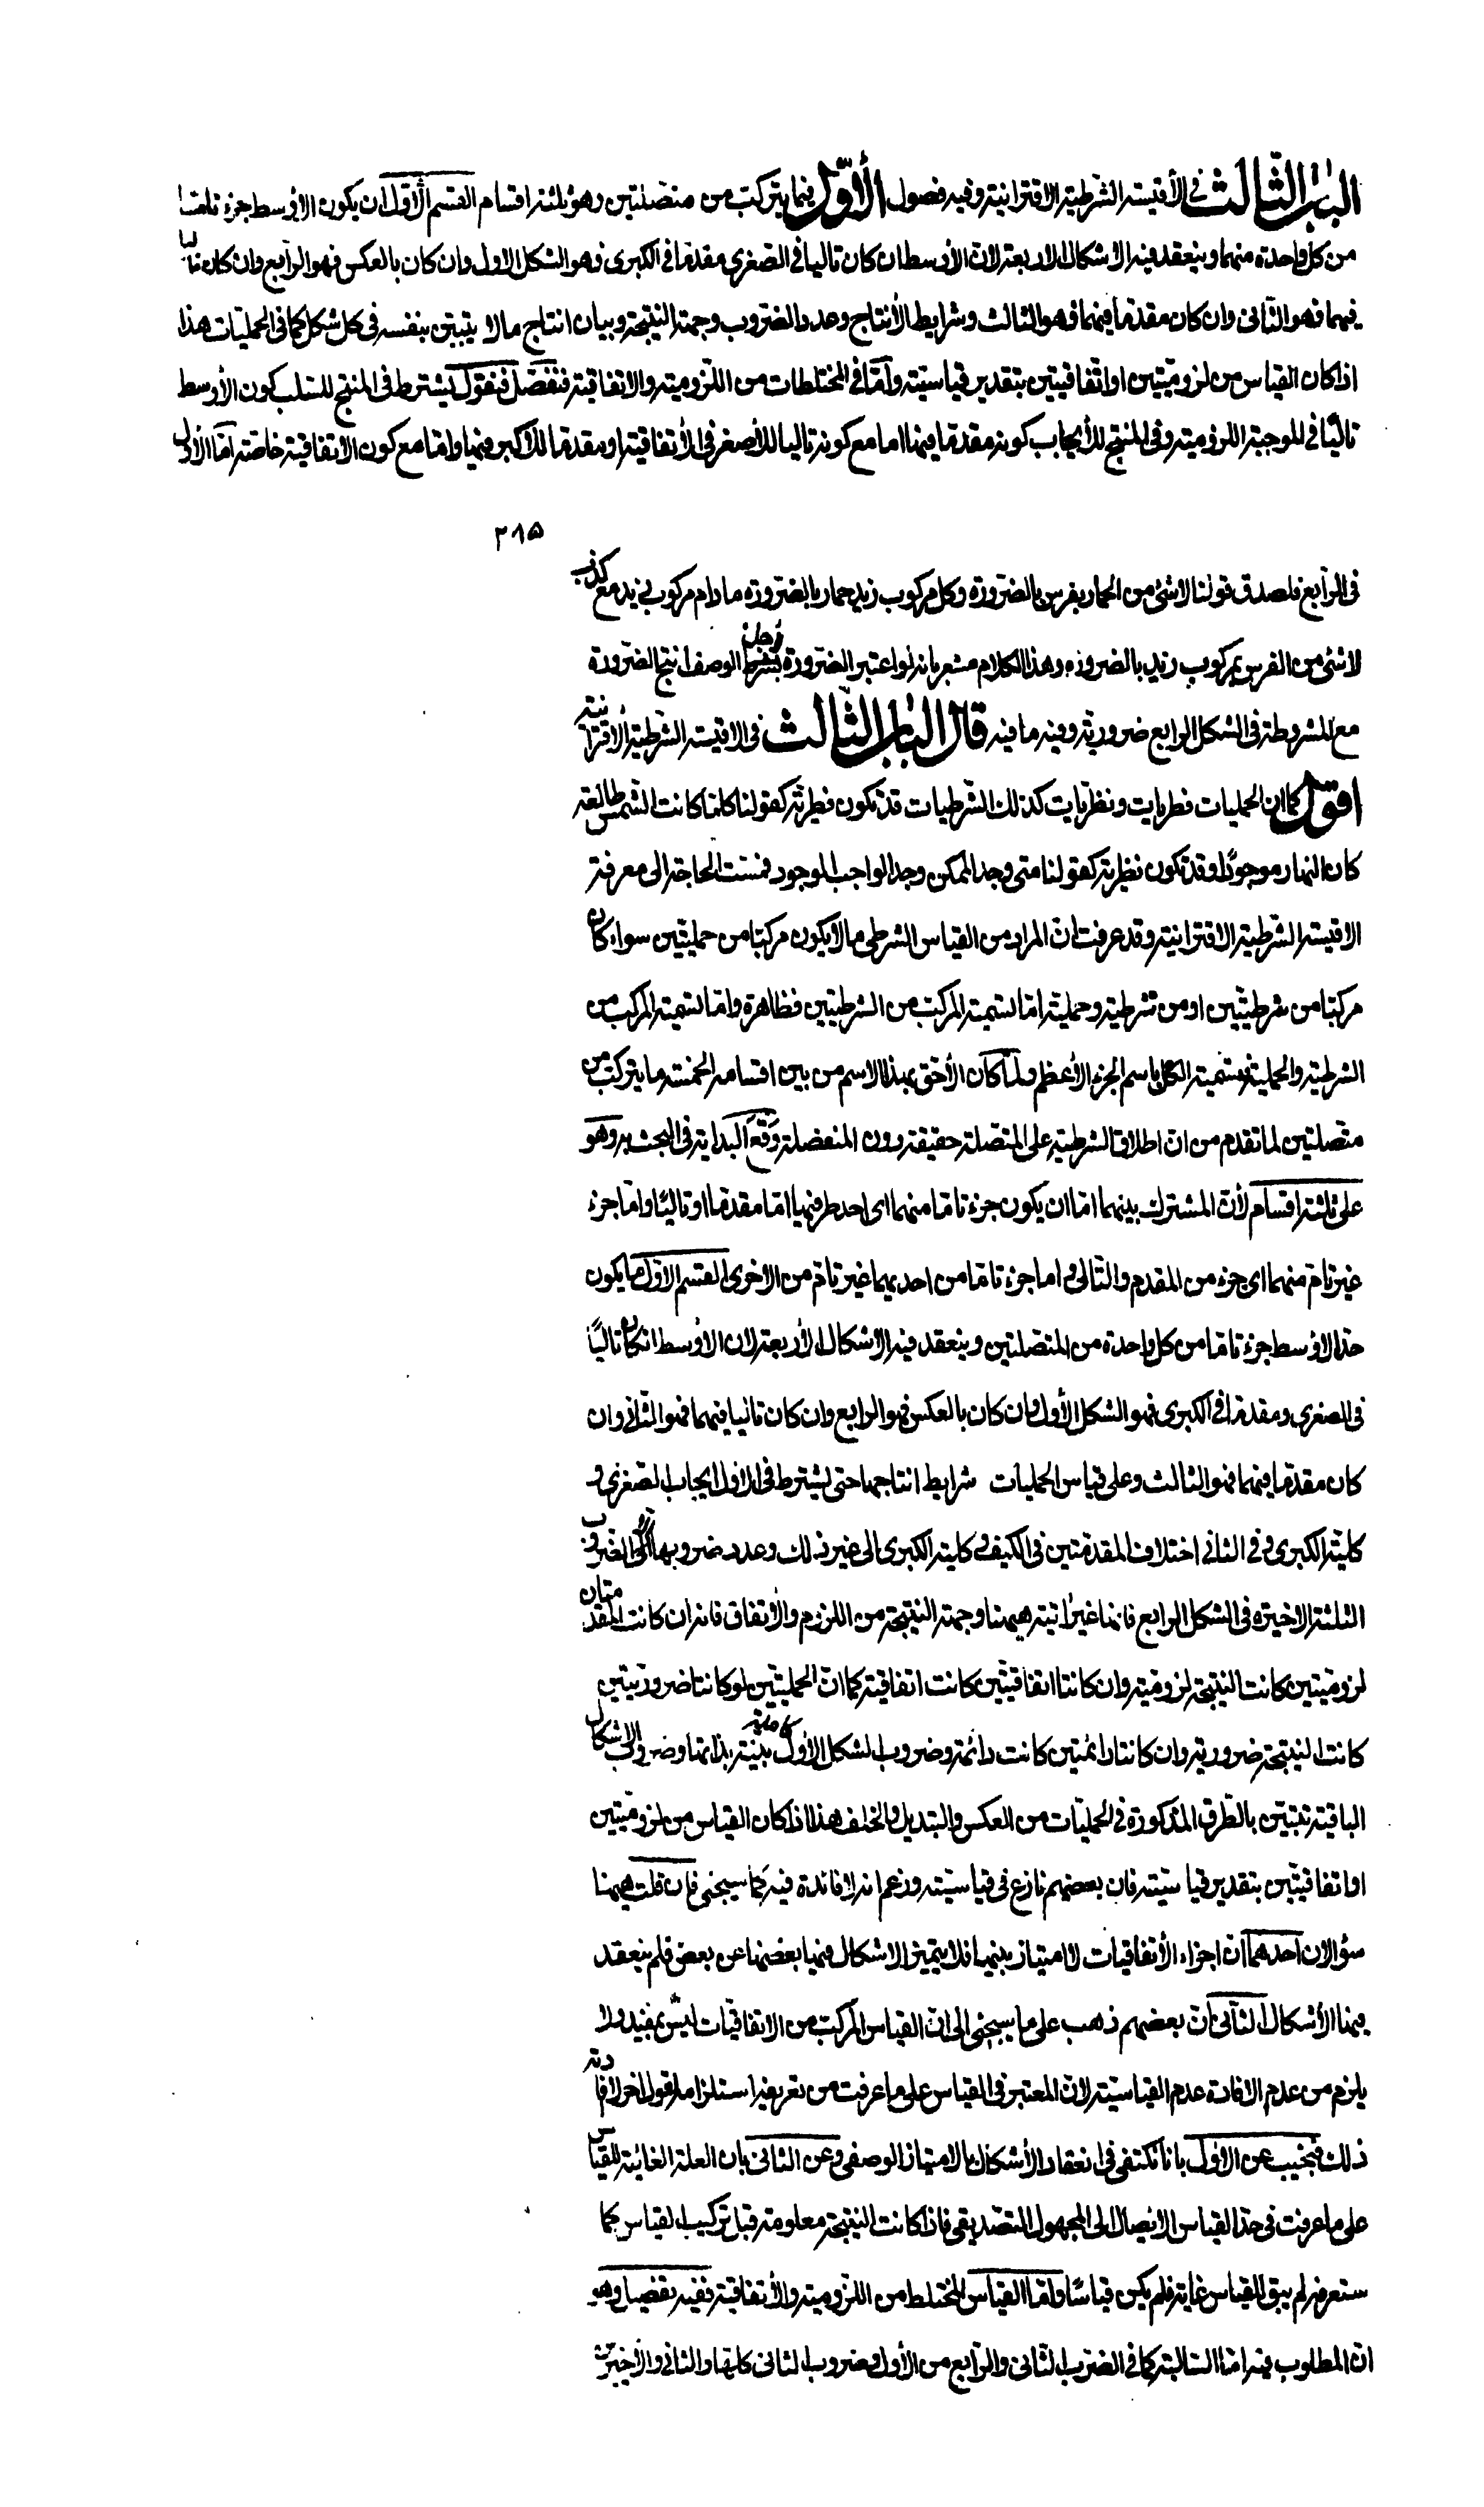 الباب الثالث في الأقيسة الشرطية الاقترانية وفيه فصول الأول فيما يتركب من متصلتين وهو ثلثة اقسام القسم الأول ان يكون الأوسط جزء تاما
من كل واحدة منهما وينعقد فيه الاشكال الاربعة لان الأوسط ان كان تاليا في الصغرى مقدما في الكبرى فهو الشكل الاول وان كان بالعكس فهو الرابع وان كان تاليا
فيهما فهو الثاني وان كان مقدما فيهما فهو الثالث وشرايط الأنتاج وعدد الضروب وجهة النتيجة وبيان انتاج ما لا يتبين بنفسه في كل شكل كما في الحمليات هذا
اذا كان القياس من لزوميتين او اتفاقيتين بتقدير قياسيته وأما في المختلطات من اللزومية والاتفاقية فنفصل فنقول يشترط في المنتج للسلب كون الأوسط
تاليًا في الموجبة اللزومية وفي المنتج للأيجاب كونه مقدما فيها اما مع كونه تاليا للأصغر في الأتفاقية او مقدما للأكبر فيها واما مع كون الاتفاقية خاصة اما الأول
٢٨٥
في الرابع فلصدق قولنا لاشئ من الحمار بفرس بالضرورة وكل مركوب زيد حمار بالضرورة ما دام مركوب زيد مع كذب
لاشئ من الفرس بمركوب زيد بالضرورة وهذا الكلام مشعر بانه لو اعتبر الضرورة بشرط الوصف انتج الضرورة
مع المشروطة في الشكل الرابع ضرورية وفيه ما فيه قال الباب الثالث في الاقيسة الشرطية الأقترانية
اقول كما ان الحمليات فطريات ونظريات كذلك الشرطيات قد تكون فطرية كقولنا كلما كانت الشمس طالعة
كان النهار موجودًا وقد تكون نظرية كقولنا متى وجد الممكن وجد الواجب الموجود فمست الحاجة الى معرفة
الاقيسة الشرطية الاقترانية وقد عرفت ان المراد من القياس الشرطي ما لا يكون مركبا من حمليتين سواء كان
مركبا من شرطيتين او من شرطية وحملية اما تسمية المركب من الشرطيتين فظاهرة واما تسمية المركب من
الشرطية والحملية فتسمية الكل باسم الجزء الأعظم ولما كان الأحق بهذا الاسم من بين اقسامه الخمسة ما يتركب من
متصلتين لما تقدم من ان اطلاق الشرطية على المتصلة حقيقة دون المنفصلة وقع البداية في البحث به وهو
على ثلثة اقسام لأن المشترك بينهما اما ان يكون جزء تاما منهما اى احد طرفيها اما مقدما او تاليًا واما جزء
غير تام منهما اى جزء من المقدم والتالى واما جزء تاما من احديهما غير تام من الاخرى القسم الاول ما يكون
حد الاوسط جزء تاما من كل واحدة من المتصلتين وينعقد فيه الاشكال الأربعة لان الاوسط ان كان تاليًا
في الصغرى ومقدما في الكبرى فهو الشكل الأول وان كان بالعكس فهو الرابع وان كان تاليا فيهما فهو الثاني وان
كان مقدما فيهما فهو الثالث وعلى قياس الحمليات شرايط انتاجها حتى يشترط في الاول ايجاب الصغرى و
كلية الكبرى وفي الثاني اختلاف المقدمتين في الكيف وكلية الكبرى الى غير ذلك وعدد ضروبها الا في الضروب
الثلثة الاخيرة في الشكل الرابع فانها غير اتية هيهنا وجهة النتيجة من اللزوم والأتفاق فانه ان كانت المقدمتان
لزوميتين كانت النتيجة لزومية وان كانتا اتفاقيتين كانت اتفاقية كما ان الحمليتين لو كانتا ضروريتين
كانت النتيجة ضرورية وان كانتا دائمتين كانت دائمة وضروب الشكل الأول كاملة بينة بذاتها وضروب الاشكال
الباقية تتبين بالطرق المذكورة في الحمليات من العكس والتبديل والخلف هذا اذا كان القياس من لزوميتين
او اتفاقيتين بتقدير قياسيته فان بعضهم نازع في قياسيته وزعم انه لا فائدة فيه كما سيجئى فان قلت هيهنا
سؤالان احدهما ان اجزاء الأتفاقيات لا امتياز بينها فلا يتميز الاشكال فيها بعضها عن بعض فلم ينعقد
فيها الأشكال الثاني ان بعضهم ذهب على ما سيجئى الى ان القياس المركب من الاتفاقيات ليس بمفيد ولا
يلزم من عدم الافادة عدم القياسية لان المعتبر في القياس على ما عرفت من تعريفه استلزامه لقول اخر لا افادته
ذلك فنجيب عن الاول بانا نكتفى في انعقاد الأشكال بالامتياز الوصفى وعن الثانى بان العلة الغائية للقياس
على ما عرفت في حد القياس الأيصال الى المجهول التصديقى فاذا كانت النتيجة معلومة قبل تركيب القياس كما
ستعرفه لم يبق للقياس غاية فلم يكن قياسًا واما القياس المختلط من اللزومية والأتفاقية ففيه تفصيل وهو
ان المطلوب فيه اما السالبة كما في الضرب الثانى والرابع من الأول وضروب الثانى كلها والثانى والأخيرة